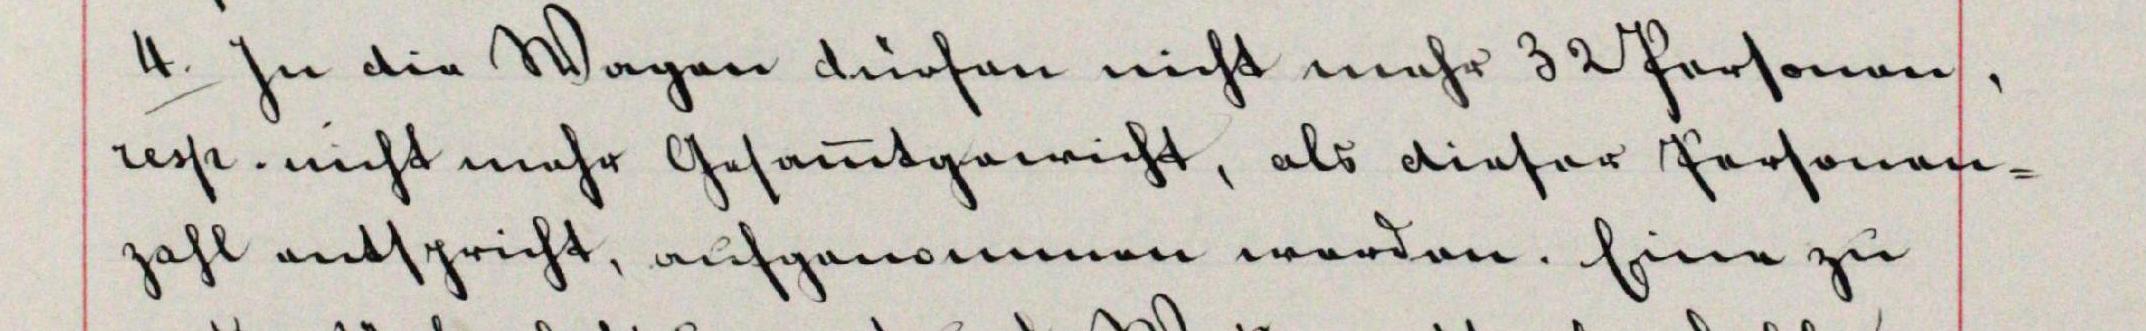 4. In die Wagen dürfen nicht mehr 32 Personen,
resp. nicht mehr Gesam̅tgewicht, als dieser Personen-
zahl entspricht, aufgenommen werden. Eine zu